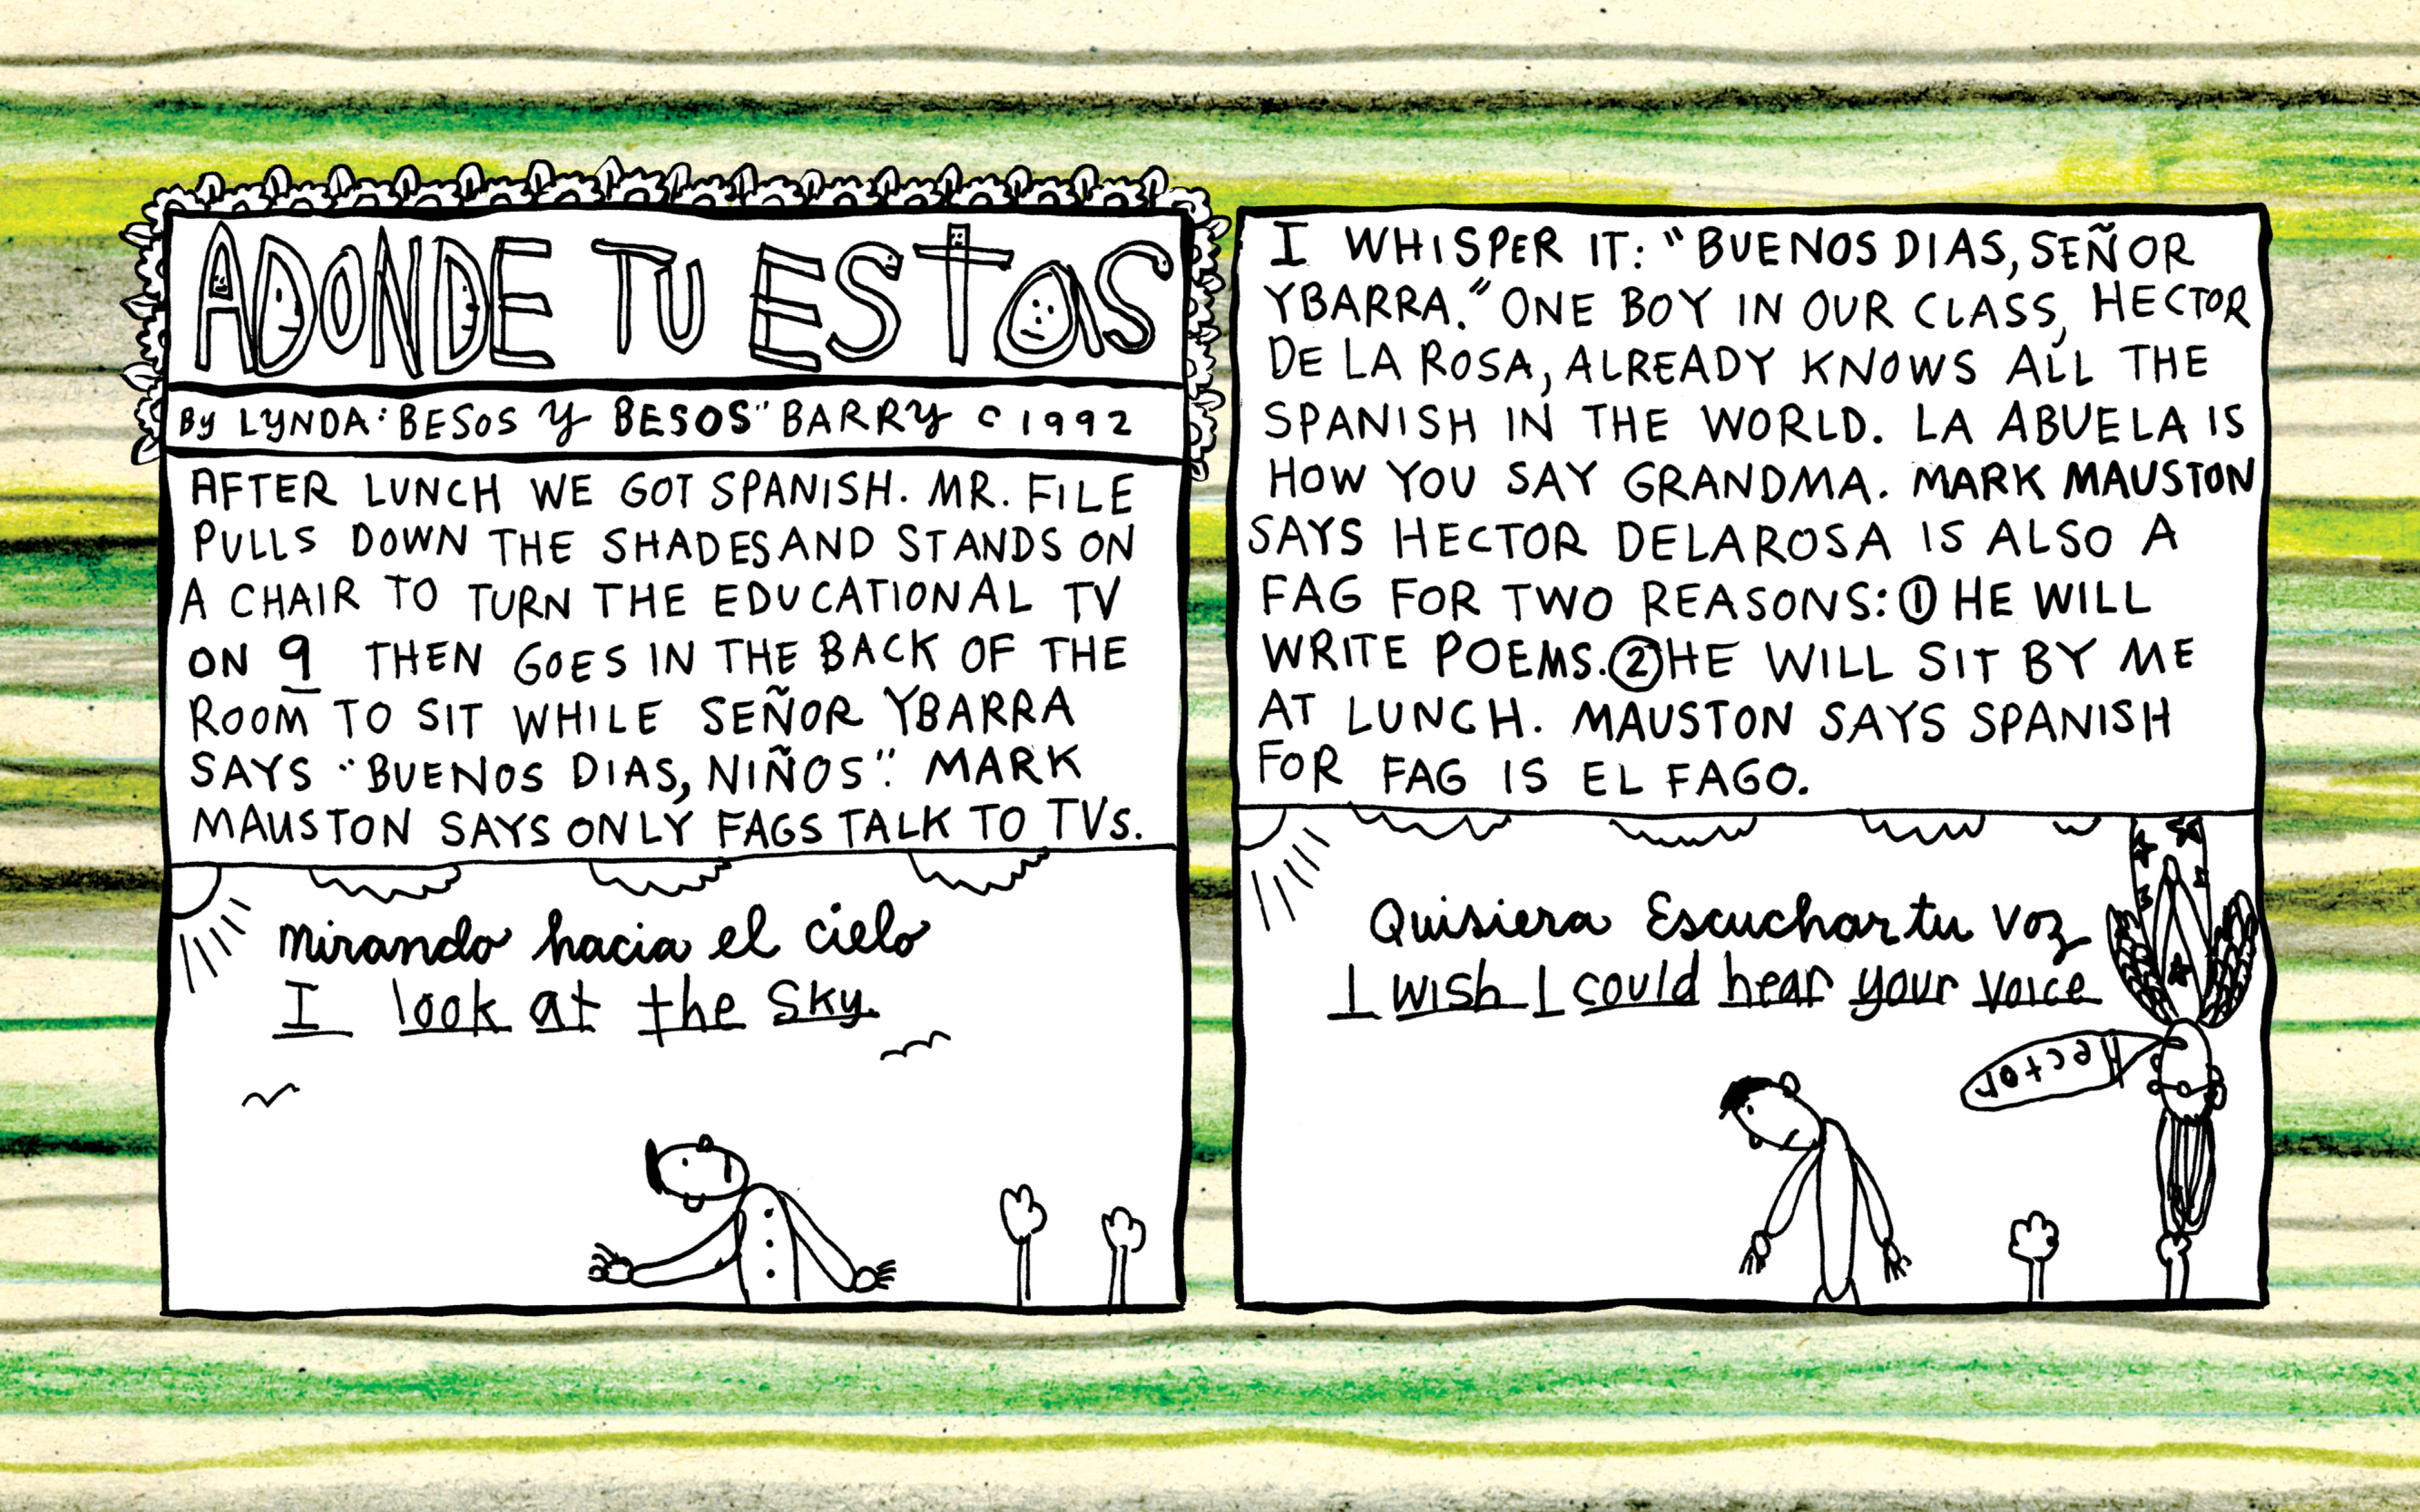 ADONDE TU ESTAS
By LYNDA "BESOS Y BESOS" BARRY © 1992
AFTER LUNCH WE GOT SPANISH. MR. FILE
PULLS DOWN THE SHADES AND STANDS ON
A CHAIR TO TURN THE EDUCATIONAL TV
ON 9 THEN GOES IN THE BACK OF THE
ROOM TO SIT WHILE SEÑOR YBARRA
SAYS "BUENOS DIAS, NIÑOS". MARK
MAUSTON SAYS ONLY FAGS TALK TO TVs.
mirando hacia el cielo
I look at the sky.
I WHISPER IT: "BUENOS DIAS, SEÑOR
YBARRA." ONE BOY IN OUR CLASS, HECTOR
DE LA ROSA, ALREADY KNOWS ALL THE
SPANISH IN THE WORLD. LA ABUELA IS
HOW YOU SAY GRANDMA. MARK MAUSTON
SAYS HECTOR DELAROSA IS ALSO A
FAG FOR TWO REASONS: ① HE WILL
WRITE POEMS. ② HE WILL SIT BY ME
AT LUNCH. MAUSTON SAYS SPANISH
FOR FAG IS EL FAGO.
Quisiera Escuchar tu voz
I wish I could hear your voice
Hector